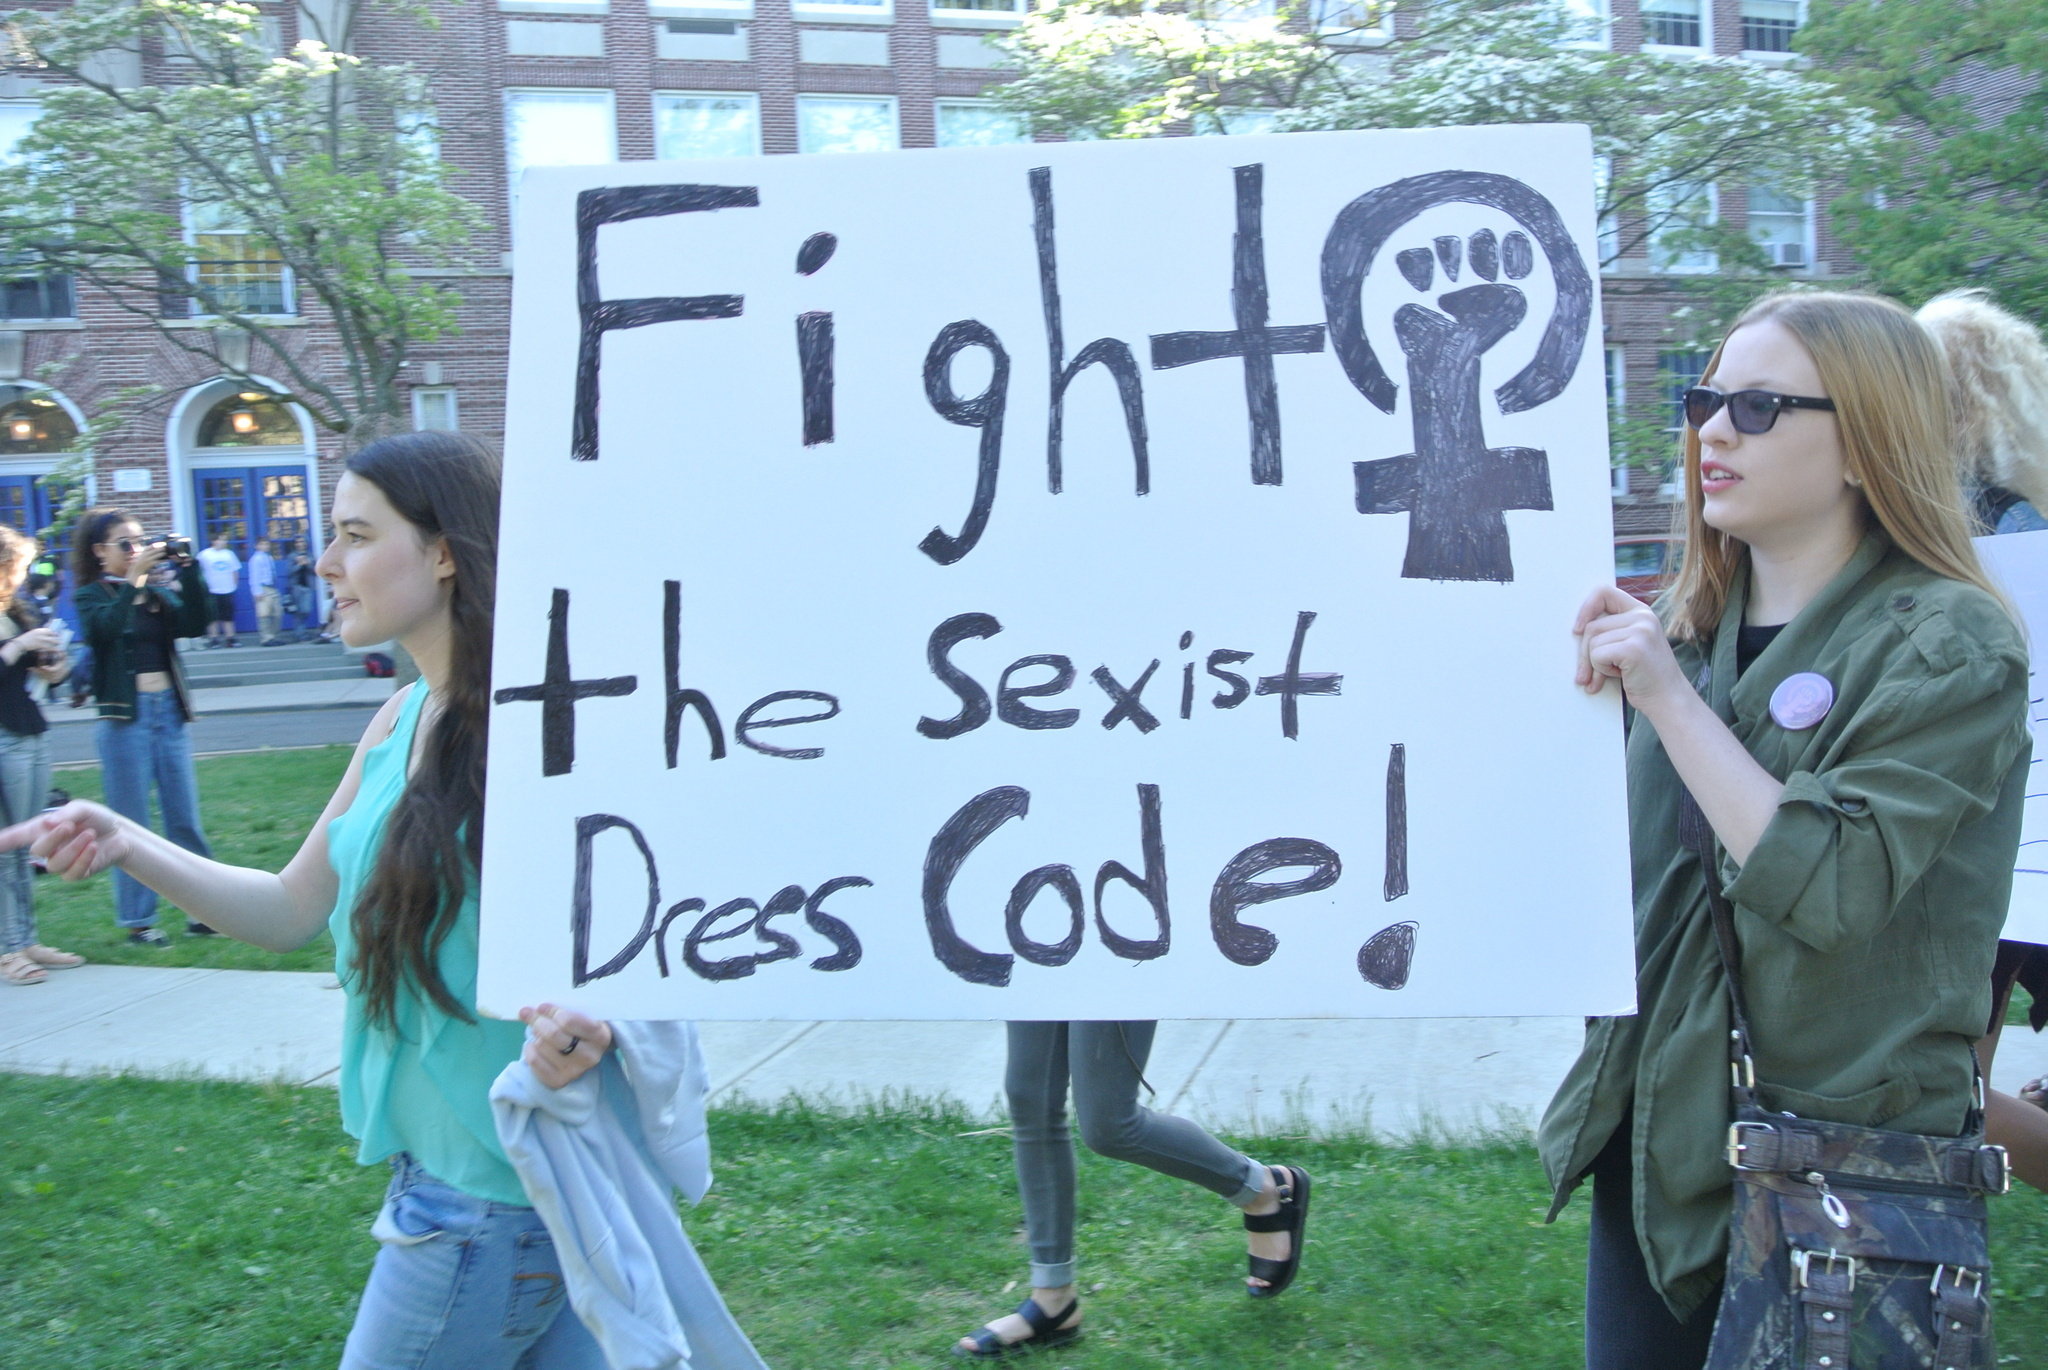 Fight
the Sexist
Dress Code!